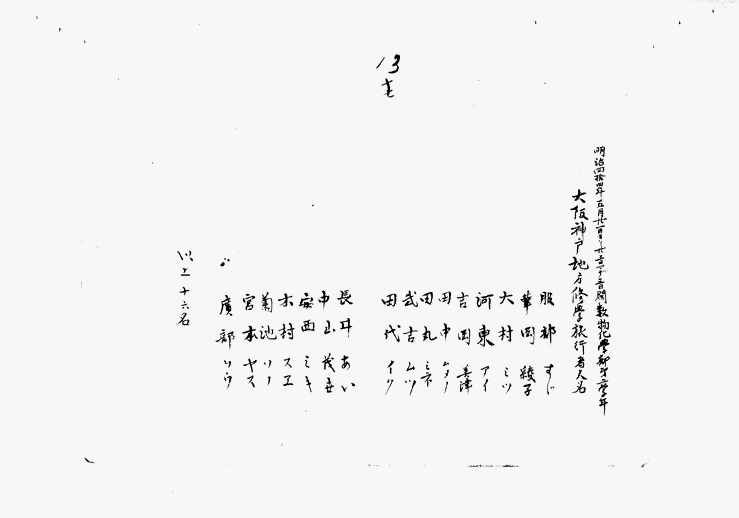 13
明治四拾四年五月廿一日ヨリ 間数物化學部第三學年
大阪神戸地方修學旅行者人名
服部 すじ
華岡 綾子
大村 ミツ
河東 アイ
吉岡 美津
田中 ムメノ
田丸 ミネ
武吉 ムツ
田代 イツ
長井 あい
中山 茂登
安西 ミキ
木村 スエ
菊池 ソノ
宮本 ヤス
廣部 ソウ
以上十六名